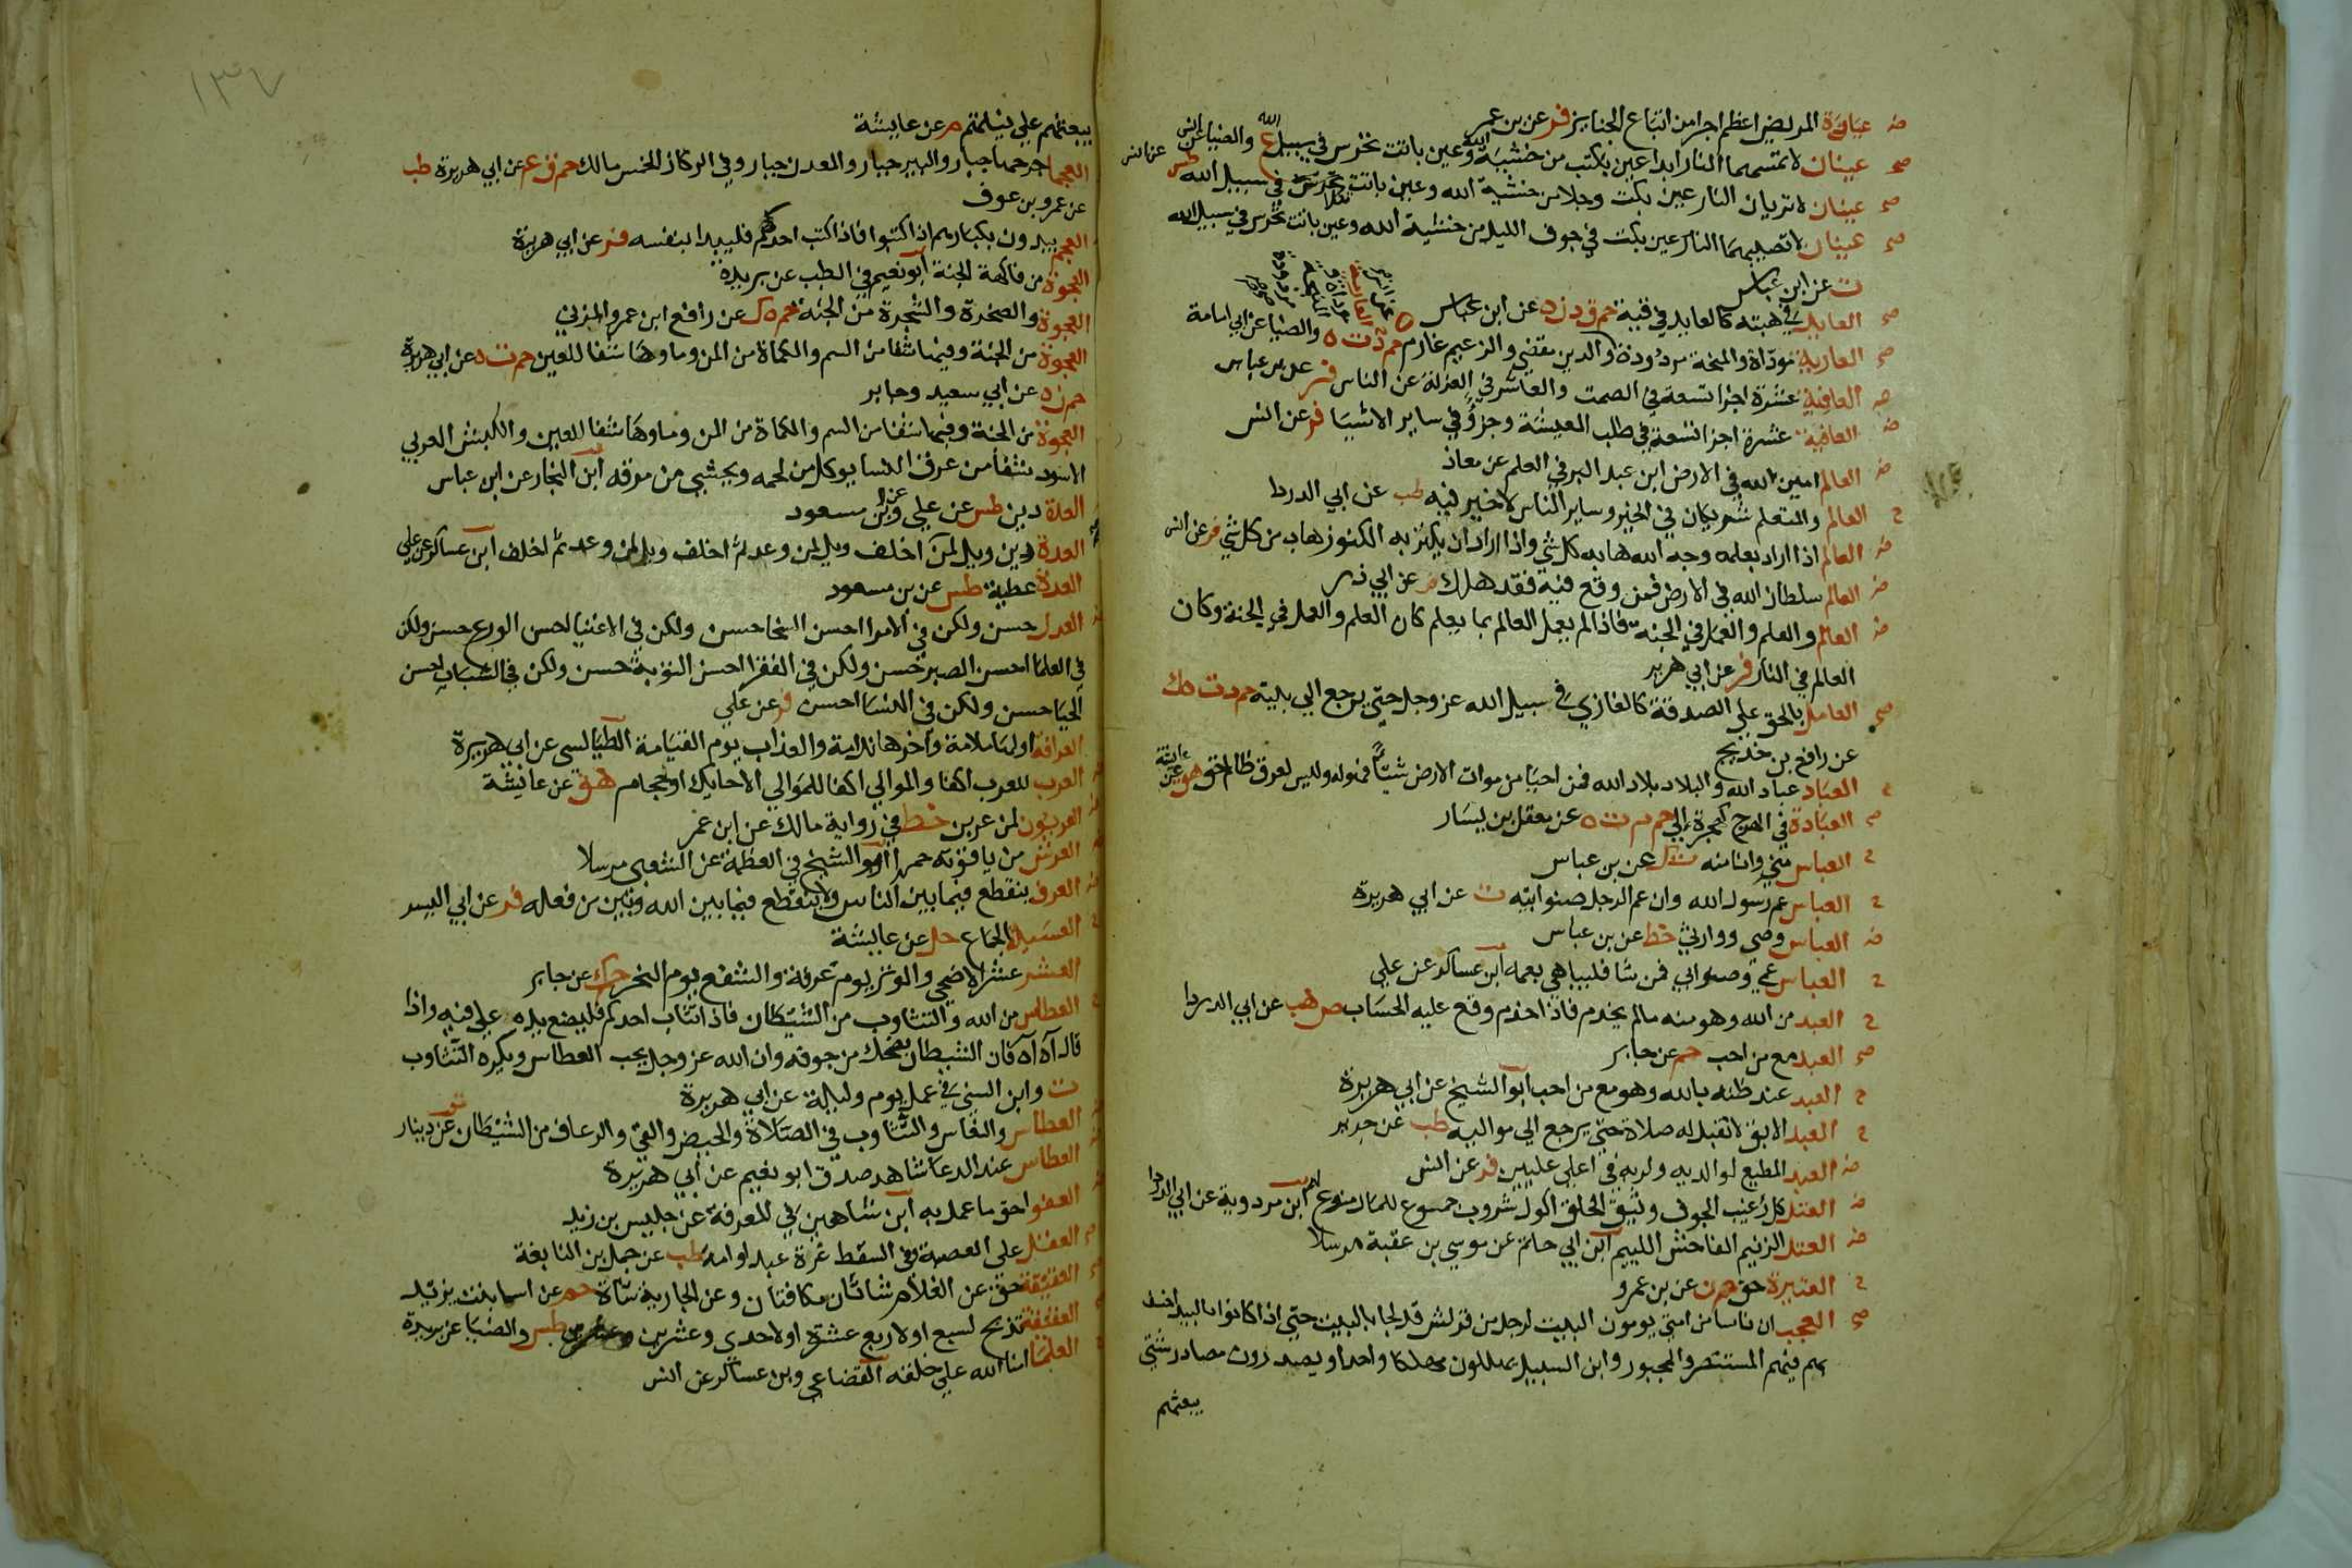 ض عيادة المريض اعظم اجرا من اتباع الجنايز فر عن بن عمر
صح عينان لا تمسهما النار ابدا عين بكت من خشية الله وعين باتت تحرس في سبيل الله ع والضيا عن انس
صح عينان لا تريان النار عين بكت وجلا من خشية الله وعين باتت تكلا في سبيل الله طس عن انس
صح عينان لا تصيبهما النار عين بكت في جوف الليل من خشية الله وعين باتت تحرس في سبيل الله
ت عن ابن عباس
صح العايد في هبته كالعايد في قيئه حم ق د ن ه عن ابن عباس
صح العارية موداة والمنحة مردودة والدين مقضي والزعيم غارم حم د ت ه والضيا عن ابي امامة
ض العافية عشرة اجزا تسعة في الصمت والعاشر في العزلة عن الناس فر عن بن عباس
ض العافية عشرة اجزا تسعة في طلب المعيشة وجزؤ في ساير الاشيا فر عن انس
ض العالم امين الله في الارض ابن عبد البر في العلم عن معاذ
ح العالم والمتعلم شريكان في الخير وساير الناس لا خير فيه طب عن ابي الدردا
ض العالم اذا اراد بعلمه وجه الله هابه كل شي واذا اراد ان يكنز به الكنوز هاب من كل شي فر عن انس
ض العالم سلطان الله في الارض فمن وقع فيه فقد هلك فر عن ابي ذر
ض العالم والعلم والعمل في الجنة فاذا لم يعمل العالم بما يعلم كان العلم والعمل في الجنة وكان
العالم في النار فر عن ابي هرير
صح العامل بالحق على الصدقة كالغازي في سبيل الله عز وجل حتى يرجع الى بيته حم د ت ه ك
عن رافع بن خديج
العباد عباد الله والبلاد بلاد الله فمن احيا من موات الارض شيئا فهو له وليس لعرق ظالم حق هق عن عائشة
صح العبادة في الهرج كهجرة الي حم م ت ه عن معقل بن يسار
ح العباس مني وانا منه ت ك عن بن عباس
ح العباس عم رسول الله وان عم الرجل صنو ابيه ت عن ابي هريرة
ض العباس وصي ووارثي خط عن بن عباس
ح العباس عمي وصنو ابي فمن شا فليباهي بعمه ابن عساكر عن علي
ح العبد من الله وهو منه ما لم يخدم فاذا خدم وقع عليه الحساب ص هب عن ابي الدردا
صح العبد مع من احب حم عن جابر
ح العبد عند ظنه بالله وهو مع من احب ابو الشيخ عن ابي هريرة
ح العبد الابق لا تقبل له صلاة حتى يرجع الى مواليه طب عن جرير
ض العبد المطيع لوالديه ولربه في اعلى عليين فر عن انس
ض العتل كل رغيب الجوف وثيق الخلق اكول شروب جموع للمال منوع له ابن مردوية عن ابي الدردا
ض العتل الزنيم الفاحش اللييم ابن ابي حاتم عن موسى بن عقبة مرسلا
ح العتيرة حق حم ن عن بن عمرو
صح العجب ان ناسا من امتي يومون البيت لرجل من قريش قد لجا بالبيت حتى اذا كانوا بالبيدا خسف
بهم فيهم المستنصر والمجبور وابن السبيل يهلكون مهلكا واحدا ويصدرون مصادر شتى
يبعثهم
١٣٧
يبعثهم على نياتهم م عن عايشة
العجما جرحها جبار والبير جبار والمعدن جبار وفي الركاز الخمس مالك حم ق ع عن ابي هريرة طب
عن عمرو بن عوف
العجم يبدون بكبارهم اذا كتبوا فاذا كتب احدكم فليبدا بنفسه فر عن ابي هريرة
العجوة من فاكهة الجنة ابو نعيم في الطب عن بريدة
العجوة والصخرة والشجرة من الجنة حم ه ك عن رافع ابن عمرو المزني
العجوة من الجنة وفيها شفا من السم والكماة من المن وماوها شفا للعين حم ت ه عن ابي هريرة
حم ن ه عن ابي سعيد وجابر
العجوة من الجنة وفيها شفا من السم والكماة من المن وماوها شفا للعين والكبش العربي
الاسود شفا من عرق النسا يوكل من لحمه ويحشي من مرقه ابن النجار عن ابن عباس
العدة دين طس عن علي وعن بن مسعود
العدة دين ويل لمن اخلف ويل لمن وعد ثم اخلف ويل لمن وعد ثم اخلف ابن عساكر عن علي
العدة عطية طس عن بن مسعود
العدل حسن ولكن في الامرا احسن السخا حسن ولكن في الاغنيا احسن الورع حسن ولكن
في العلما احسن الصبر حسن ولكن في الفقرا احسن التوبة حسن ولكن في الشباب احسن
الحيا حسن ولكن في النسا احسن فر عن علي
العرافة اولها ملامة واخرها ندامة والعذاب يوم القيامة الطيالسى عن ابي هريرة
العرب للعرب اكفا والموالي اكفا للموالي الا حايك او حجام هق عن عائشة
العربون لمن عربن خط في رواية مالك عن ابن عمر
العرش من ياقوتة حمرا ابو الشيخ في العظمة عن الشعبي مرسلا
العرف ينقطع فيما بين الناس ولا ينقطع فيما بين الله وبين من فعله فر عن ابي اليسر
العسيلة الجماع حل عن عايشة
العشر عشر الاضحى والوتر يوم عرفة والشفع يوم النحر حم ك عن جابر
العطاس من الله والتثاوب من الشيطان فاذا تثاب احدكم فليضع يده على فيه واذا
قال آه آه فان الشيطان يضحك من جوفه وان الله عز وجل يحب العطاس ويكره التثاوب
ت وابن السني في عمل يوم وليلة عن ابي هريرة
العطاس والنعاس والتثاوب في الصلاة والحيض والقي والرعاف من الشيطان ت عن دينار
العطاس عند الدعا شاهد صدق ابو نعيم عن ابي هريرة
العفو احق ما عمل به ابن شاهين في المعرفة عن حليس بن زيد
العقل على العصبة وفي السقط غرة عبد او امة طب عن حمل بن النابغة
العقيقة حق عن الغلام شاتان مكافتان وعن الجارية شاة حم عن اسما بنت يزيد
العقيقة تذبح لسبع او لاربع عشرة او لاحدى وعشرين طس والضيا عن بريدة
العلما امنا الله على خلقه القضاعي وبن عساكر عن انس